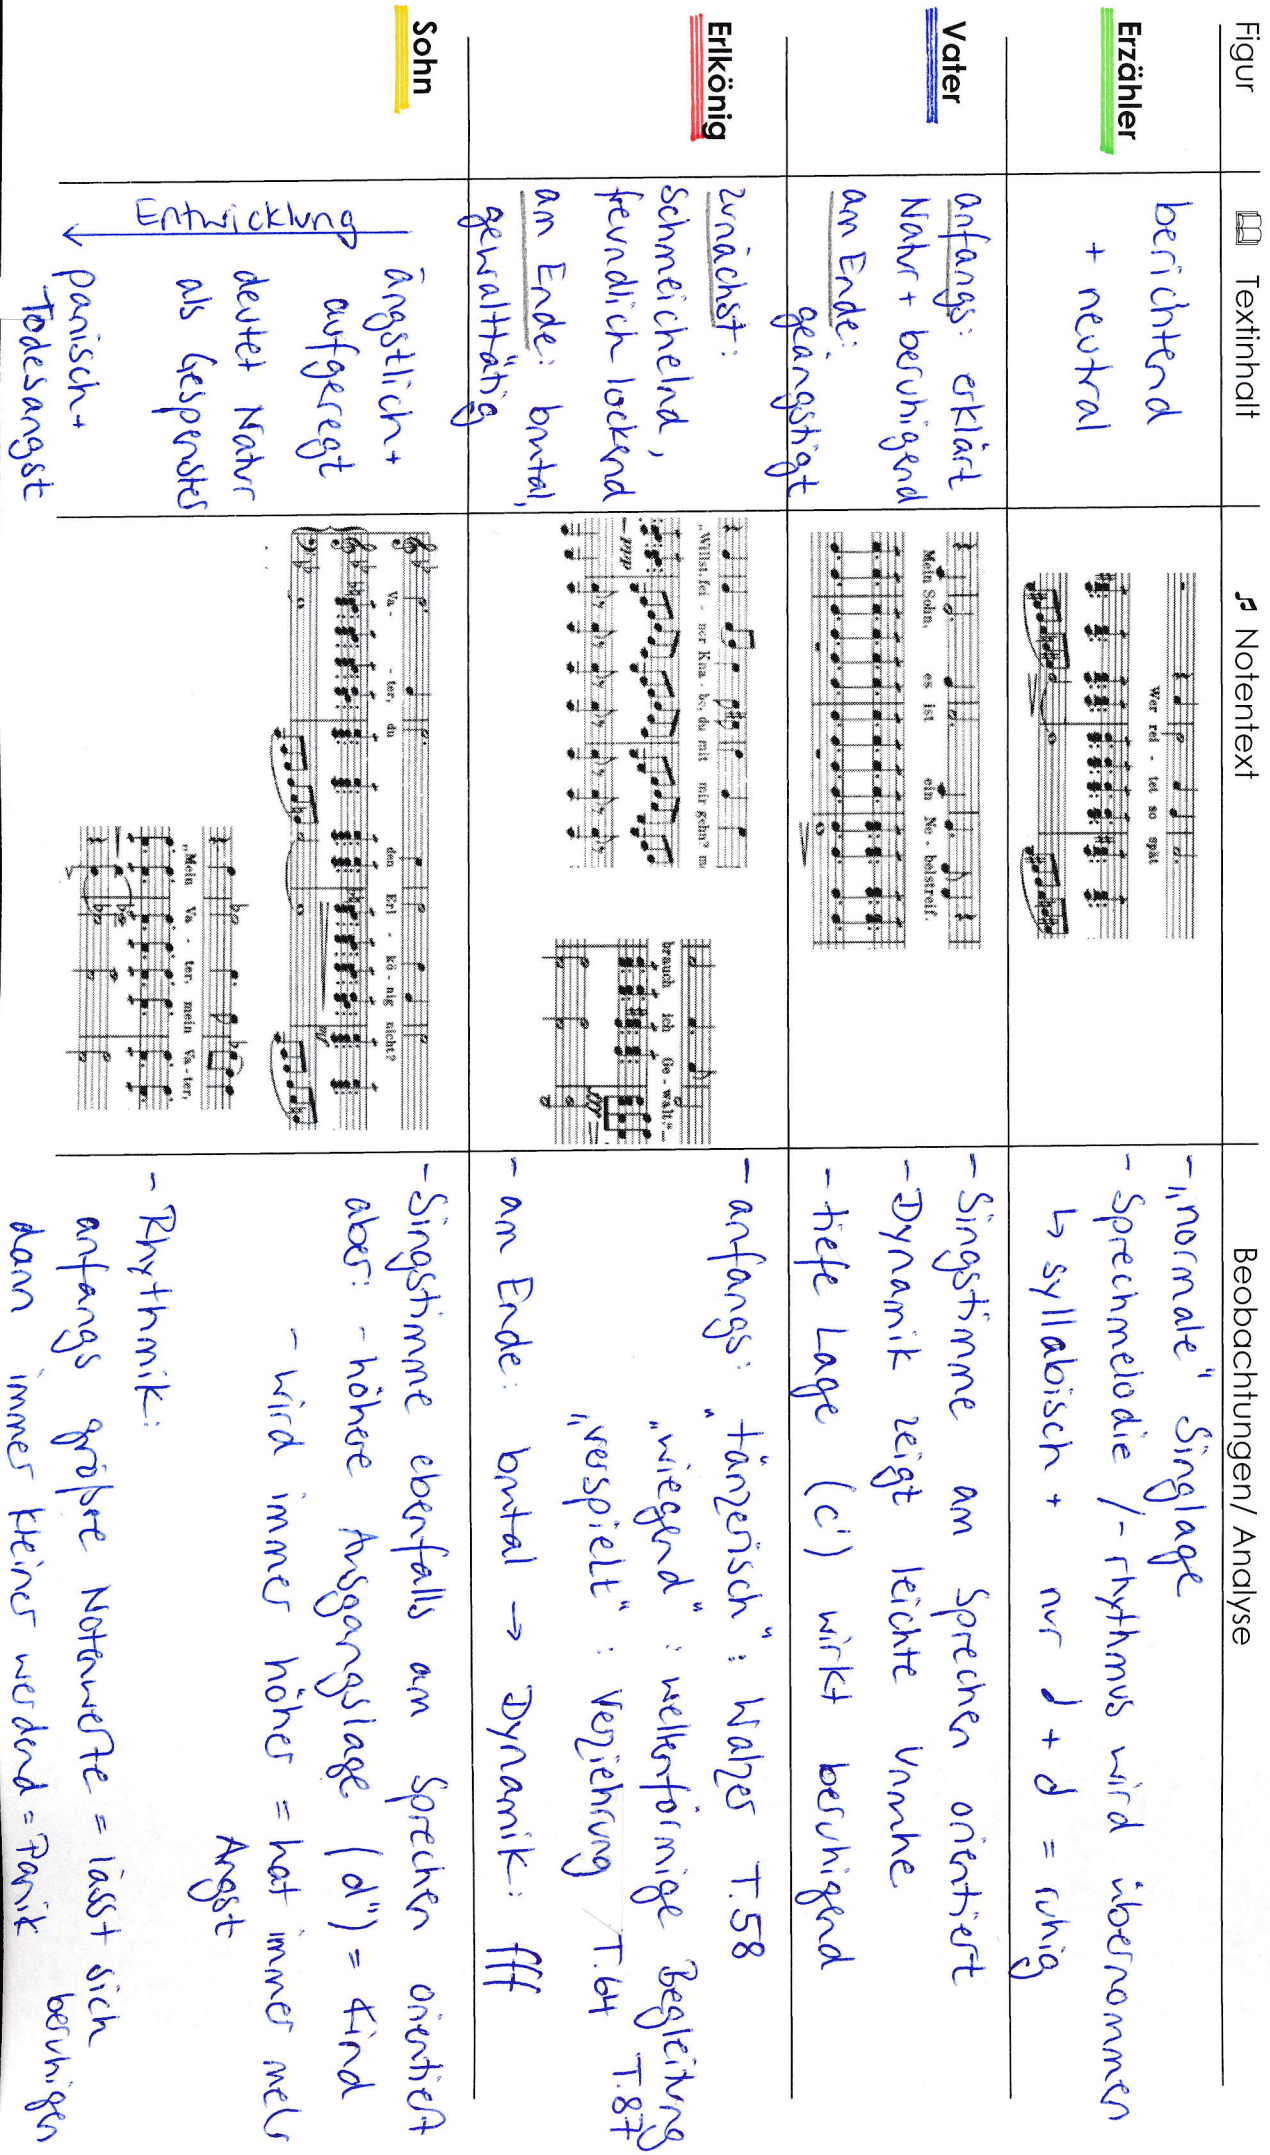 Figur
Textinhalt
Notentext
Beobachtungen/ Analyse
Erzähler
berichtend
+ neutral
Wer rei - tet so spät
- „normale" Singlage
- Sprechmelodie /- rhythmus wird übernommen
↳ syllabisch + nur ♩ + 𝅗𝅥 = ruhig
Vater
anfangs: erklärt
Natur + beruhigend
am Ende:
geängstigt
Mein Sohn, es ist ein Ne - belstreif.
- Singstimme am Sprechen orientiert
- Dynamik zeigt leichte Unruhe
- tiefe Lage (c') wirkt beruhigend
Erlkönig
zunächst:
schmeichelnd,
freundlich lockend
am Ende: brutal,
gewalttätig
„Willst, fei - ner Kna - be, du mit mir gehn? m
ppp
brauch ich Ge - walt."
fff
- anfangs: „tänzerisch": Walzer T.58
„wiegend": wellenförmige Begleitung
„verspielt": Verziehrung T.64 T.87
- am Ende: brutal → Dynamik: fff
Sohn
Entwicklung
ängstlich +
aufgeregt
deutet Natur
als Gespenster
panisch +
Todesangst
Va - ter, du den Erl - kö - nig nicht?
„Mein Va - ter, mein Va - ter,
- Singstimme ebenfalls am Sprechen orientiert
aber: - höhere Ausgangslage (d'') = Kind
- wird immer höher = hat immer mehr
Angst
- Rhythmik:
anfangs größere Notenwerte = lässt sich
beruhigen
dann immer kleiner werdend = Panik